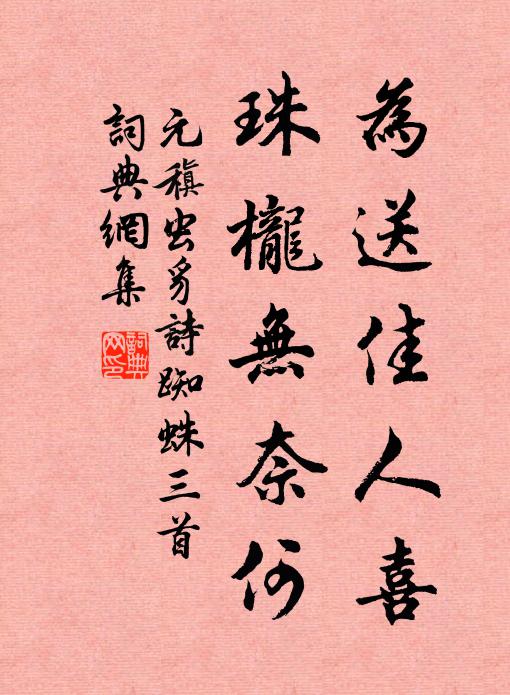 為送佳人喜
珠櫳無奈何
元稹虫豸詩蜘蛛三首
詞典網集
詞典网印